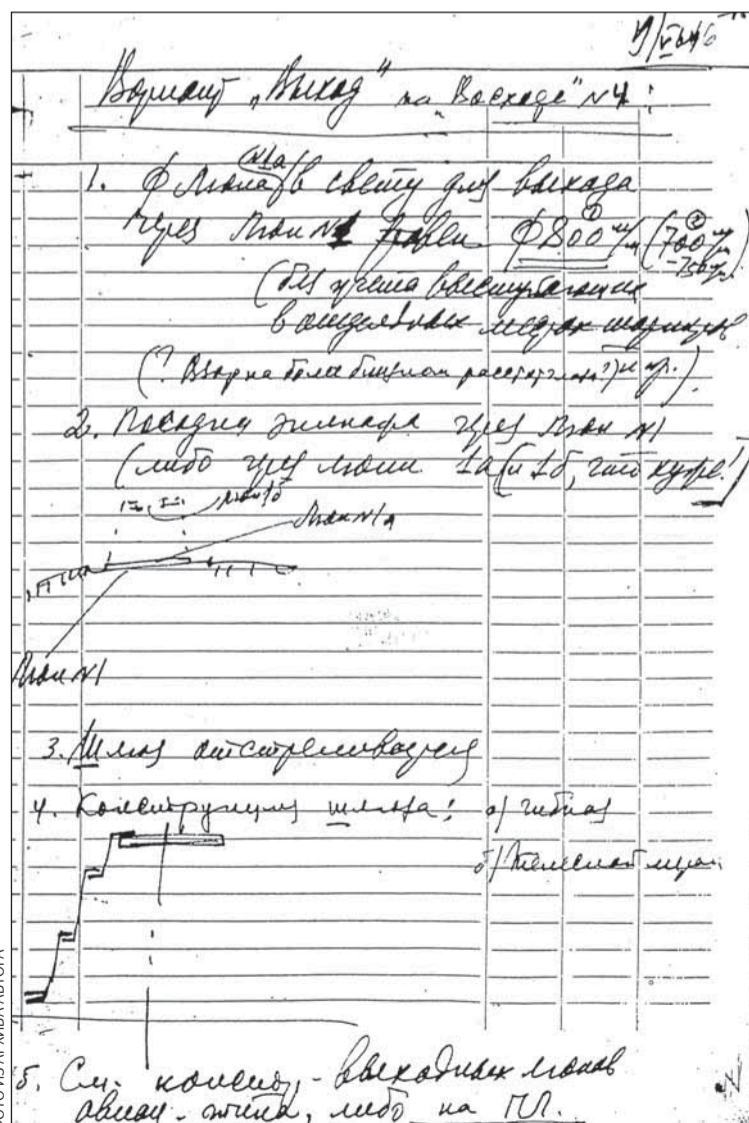 Вариант „Выход" на „Восходе" №4:
1. ф люка (№1а) в свету для выхода
через люк №1 равен ф800 м/м (700 м/м
-750 м/м)
(без учета выступающих
в отдельных местах шариков
(? Взор на более близком расстоянии? и др.)
2. Посадка экипажа через люк №1
(либо через люки 1а и 1б,
люк 1б
Люк №1а
Люк №1
3. Шлюз отстреливается
4. Конструкция шлюза: а) гибкая
б) телескопич.
5. См. констр. выходных люков
авиац. типа, либо на ПЛ.
ФОТО ИЗ АРХИВА АВТОРА